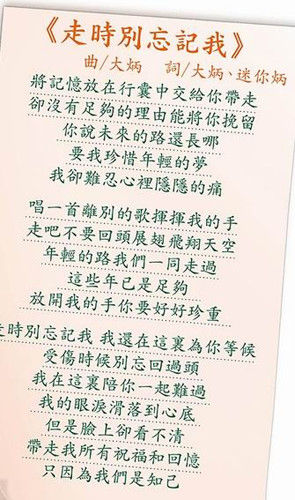 《走時別忘記我》
曲/大炳 詞/大炳、迷你炳
將記憶放在行囊中交給你帶走
卻沒有足夠的理由能將你挽留
你說未來的路還長哪
要我珍惜年輕的夢
我卻難忍心裡隱隱的痛
唱一首離別的歌揮揮我的手
走吧不要回頭展翅飛翔天空
年輕的路我們一同走過
這些年已是足夠
放開我的手你要好好珍重
走時別忘記我 我還在這裏為你等候
受傷時候別忘回過頭
我在這裏陪你一起難過
我的眼淚滑落到心底
但是臉上卻看不清
帶走我所有祝福和回憶
只因為我們是知己